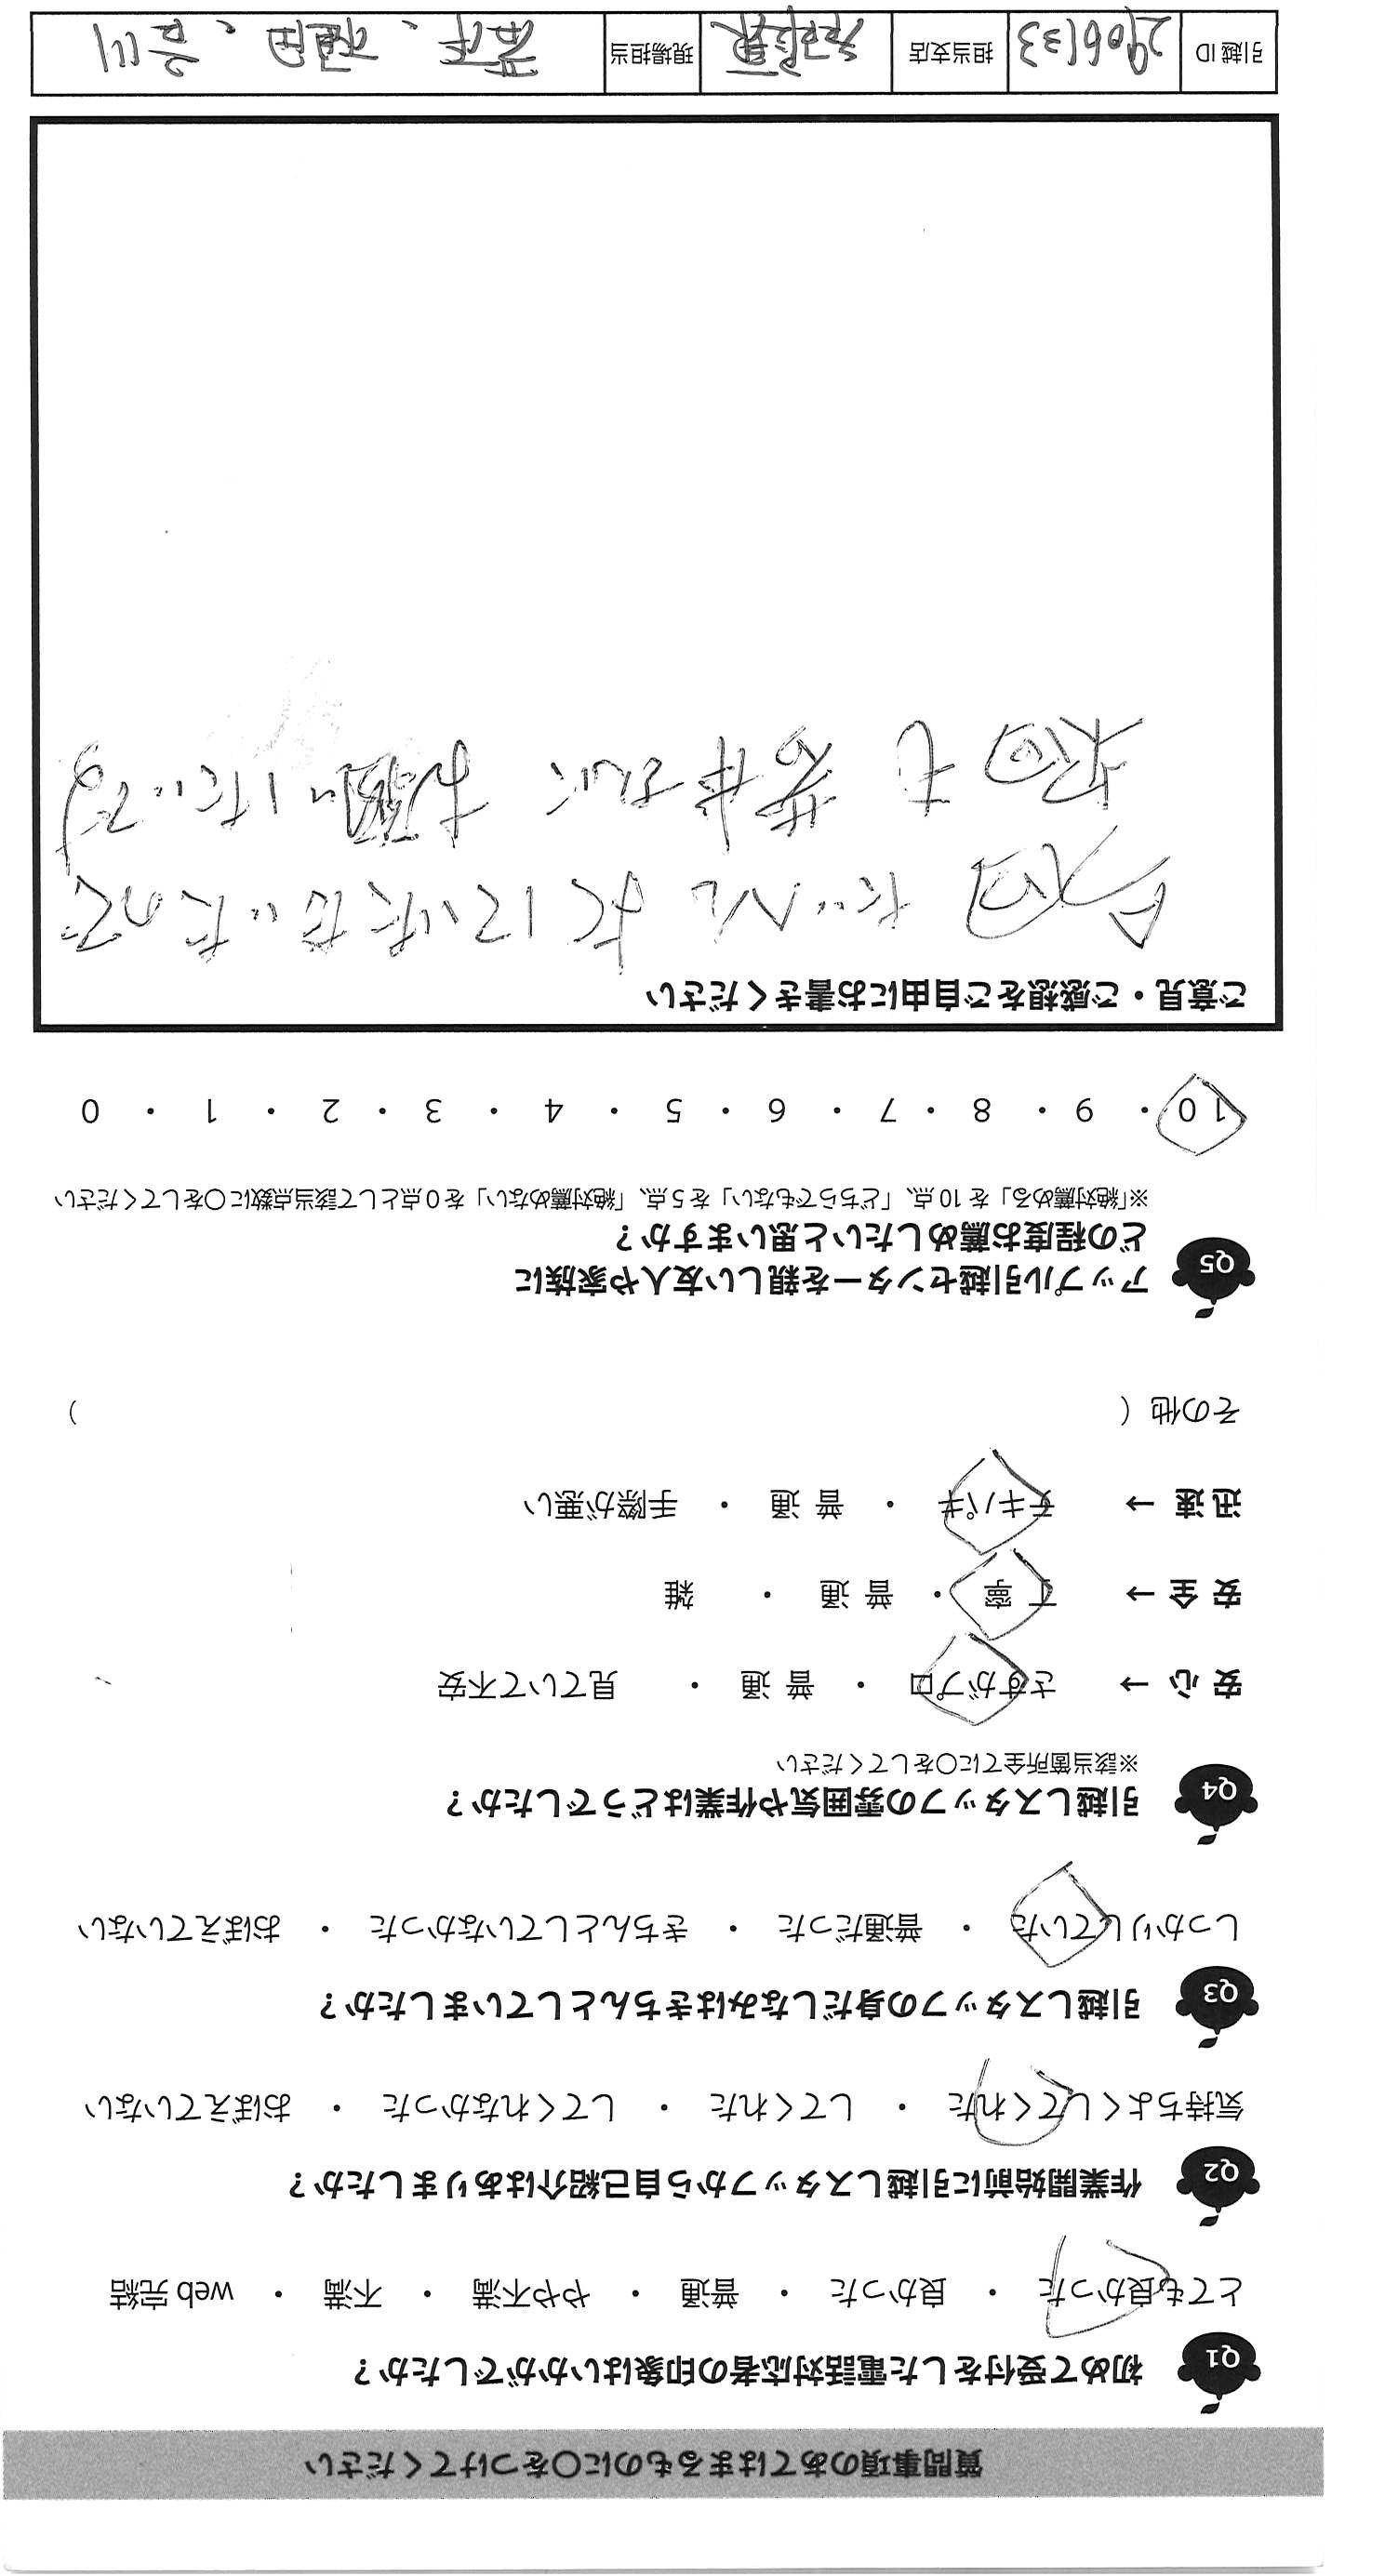 質問事項のあてはまるものに○をつけてください
Q1 初めて受付をした電話対応者の印象はいかがでしたか？
とても良かった ・ 良かった ・ 普通 ・ やや不満 ・ 不満 ・ web 完結
Q2 作業開始前に引越しスタッフから自己紹介はありましたか？
気持ちよくしてくれた ・ してくれた ・ してくれなかった ・ おぼえていない
Q3 引越しスタッフの身だしなみはきちんとしていましたか？
しっかりしていた ・ 普通だった ・ きちんとしていなかった ・ おぼえていない
Q4 引越しスタッフの雰囲気や作業はどうでしたか？
※該当箇所全てに○をしてください
安 心 → さすがプロ ・ 普 通 ・ 見ていて不安
安 全 → 丁 寧 ・ 普 通 ・ 雑
迅 速 → テキパキ ・ 普 通 ・ 手際が悪い
その他（ ）
Q5 アップル引越センターを親しい友人や家族に
どの程度お薦めしたいと思いますか？
※「絶対薦める」を 10 点、「どちらでもない」を 5 点、「絶対薦めない」を 0 点として該当点数に○をしてください
10 ・ 9 ・ 8 ・ 7 ・ 6 ・ 5 ・ 4 ・ 3 ・ 2 ・ 1 ・ 0
ご意見・ご感想をご自由にお書きください
今回 していただいたので
も お願いしたいです
引越 ID 2906133 担当支店 現場担当 吉川